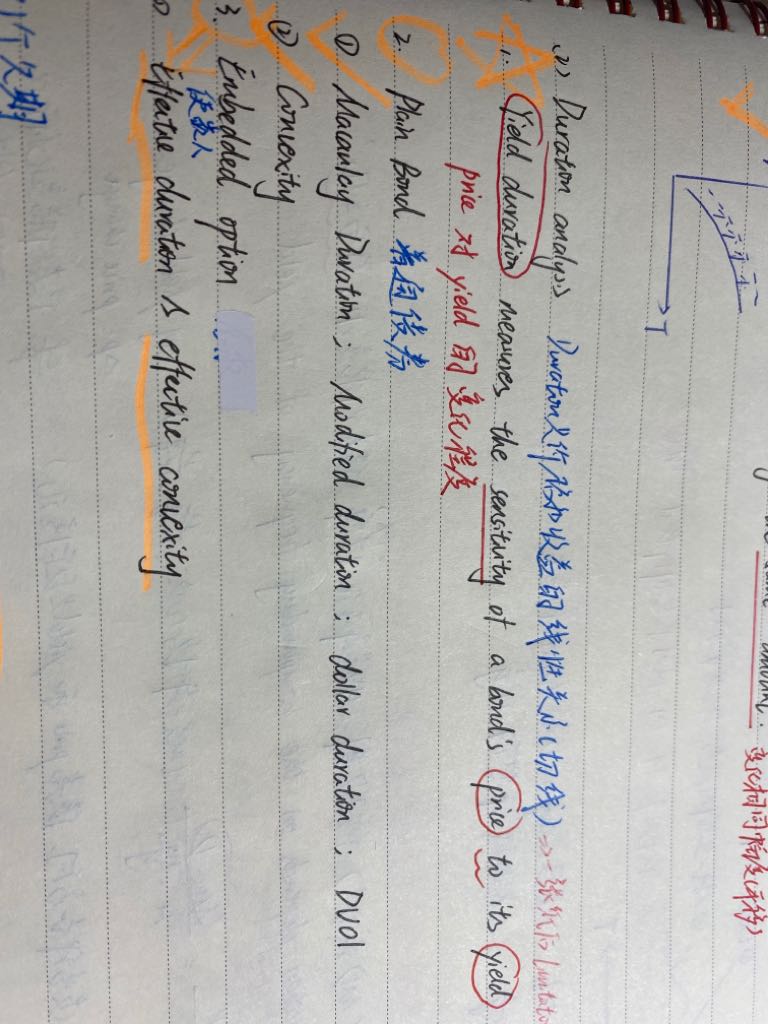 the same amount. 变化相同幅度(平移)
T
(2) Duration analysis Duration是价格和收益的线性关系(切线) →一张纸后 limitatio
1. Yield duration measures the sensitivity of a bond's price to its yield
price 对 yield 的变化程度
2. Plain Bond 普通债券
① Macaulay Duration; Modified duration; dollar duration; DV01
② Convexity
3. Embedded option
债券人
① Effective duration & effective convexity
久期